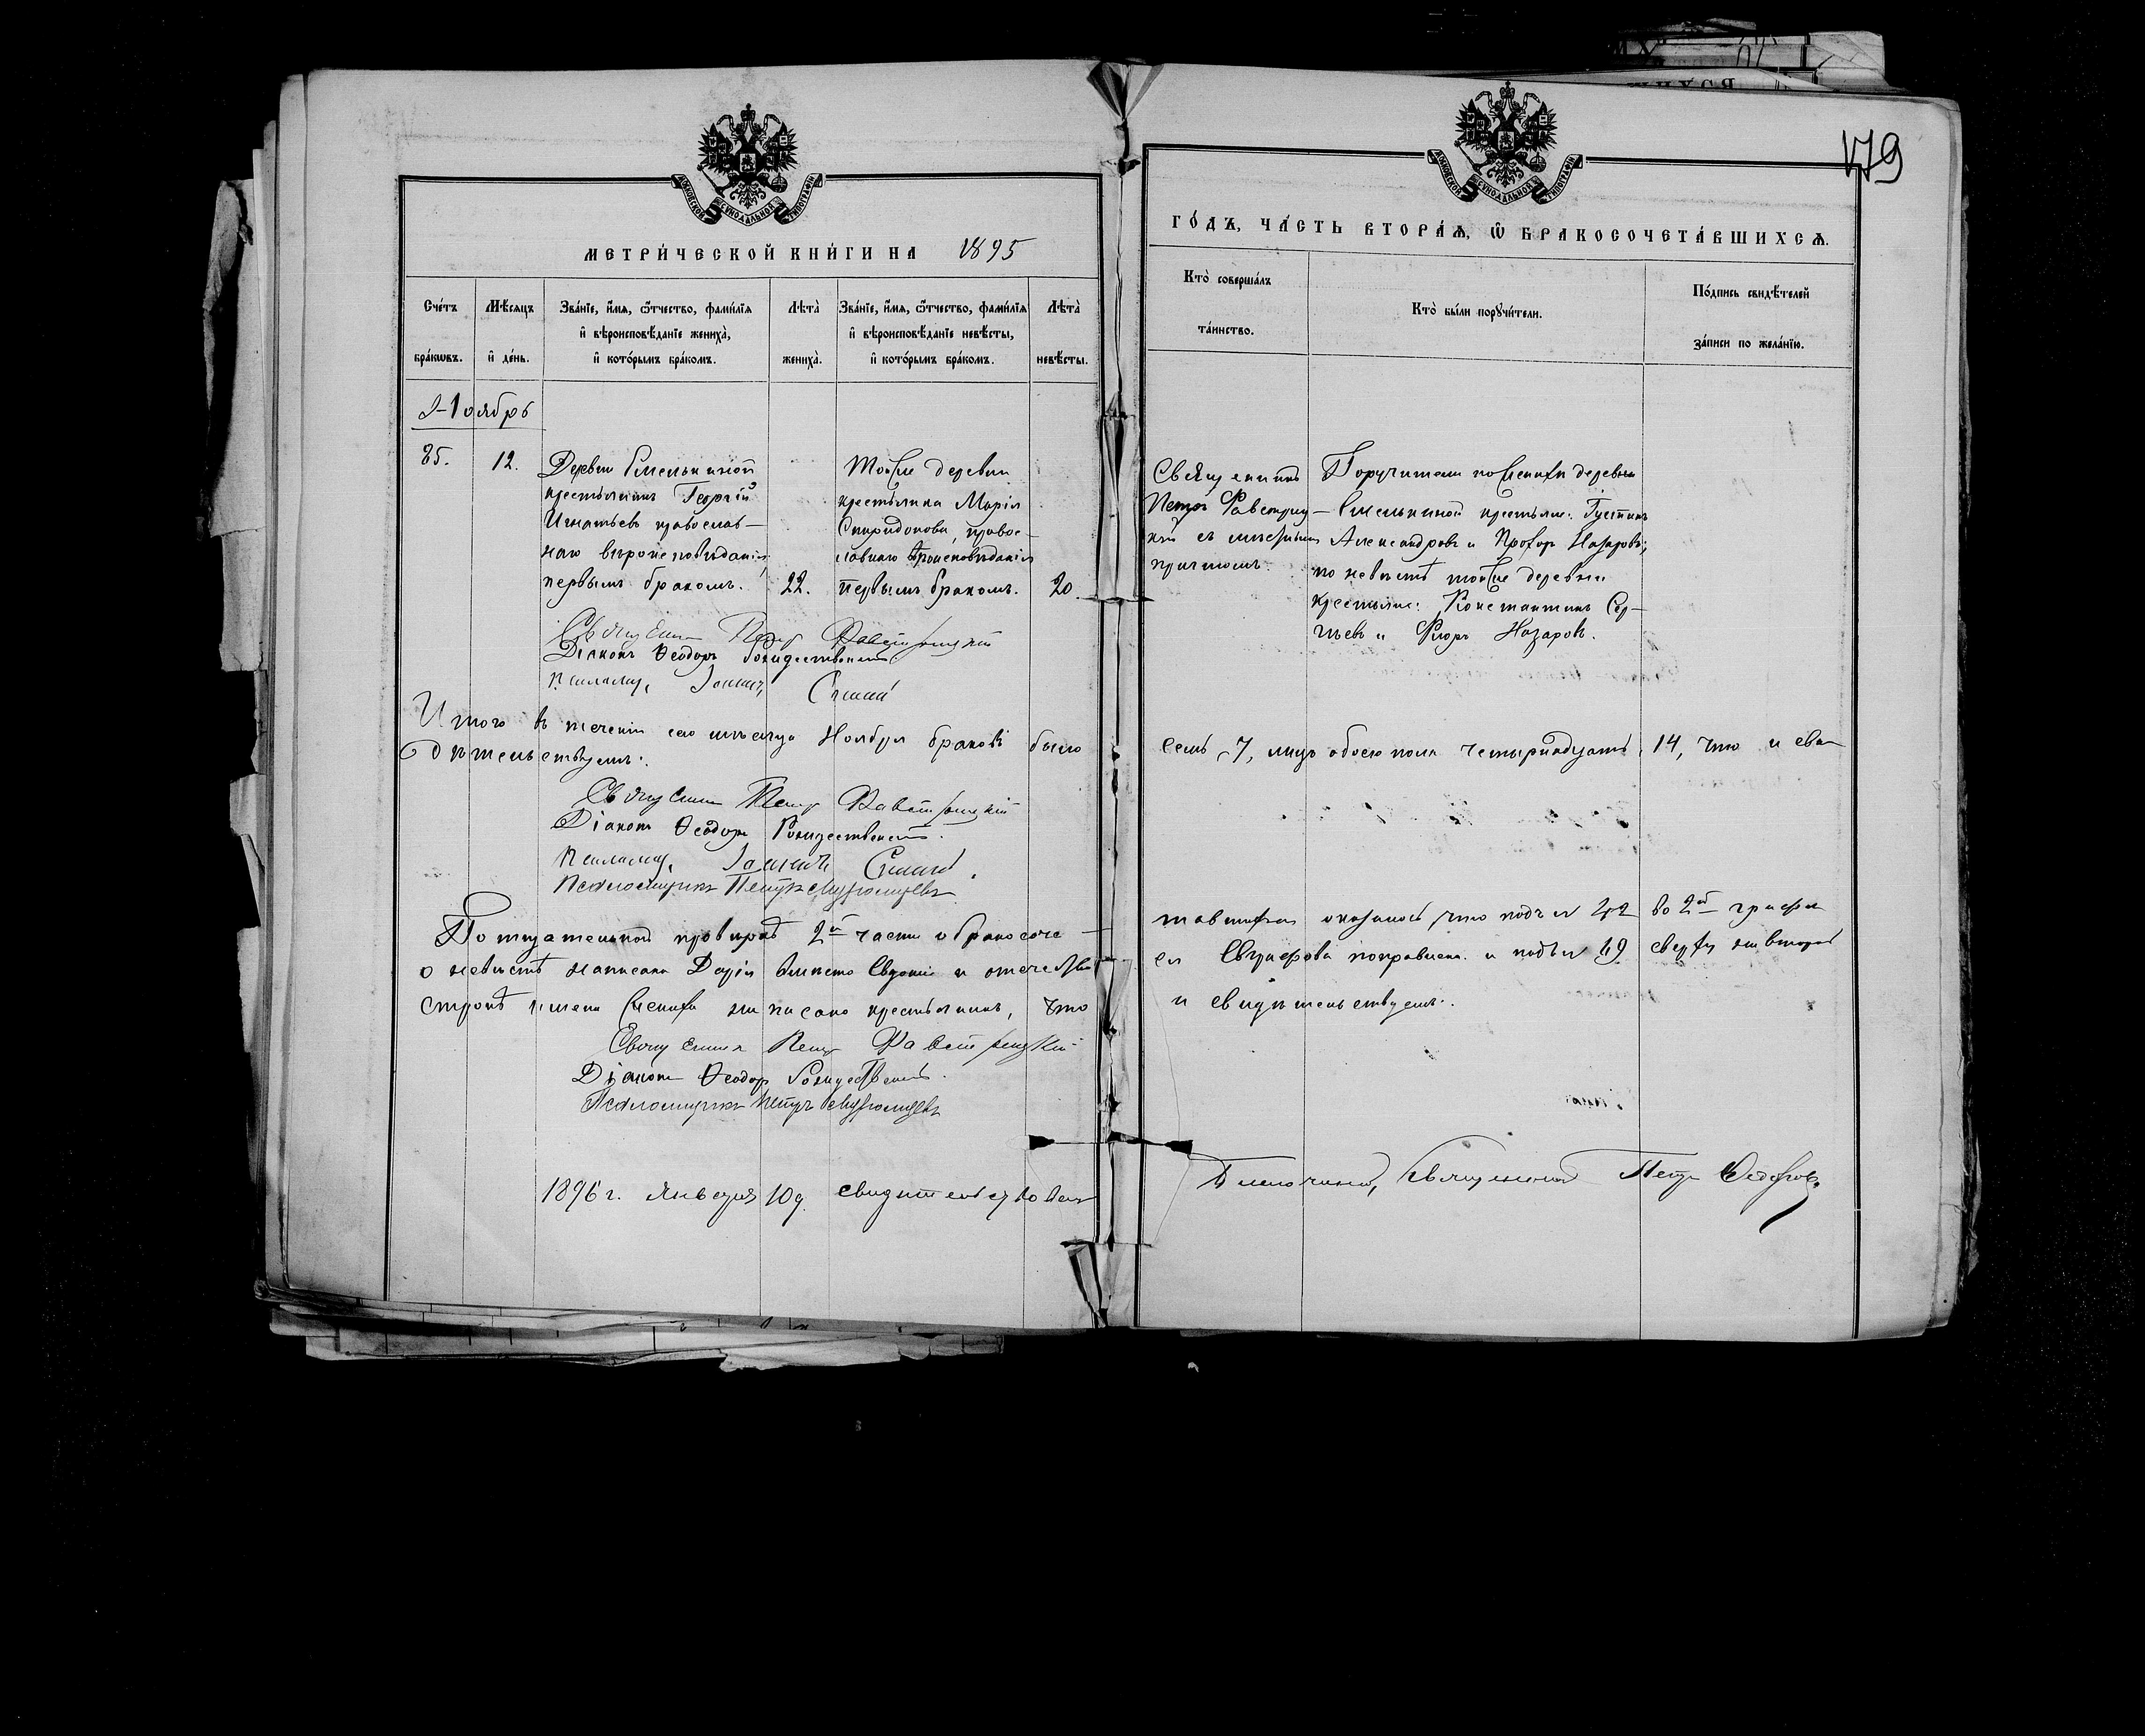 179
МЕТРИ́ЧЕСКОЙ КНИ́ГИ НА 1895
ГО́ДЪ, ЧА́СТЬ ВТОРА́Ѧ, Ѽ БРАКОСОЧЕТА́ВШИХСѦ.
Сче́тъ бра́кѡвъ.
Мѣ́сяцъ и҆ де́нь.
Зва́нїе, и҆́мя, ѻ҆́тчество, фами́лїя
и҆ вѣроисповѣ́данїе жениха̀,
и҆ кото́рымъ бра́комъ.
Лѣ́та̀ жениха̀.
Зва́нїе, и҆́мя, ѻ҆́тчество, фами́лїя
и҆ вѣроисповѣ́данїе невѣ́сты,
и҆ кото́рымъ бра́комъ.
Лѣ́та̀ невѣ́сты.
Кто̀ соверша́лъ
та́инство.
Кто̀ бы́ли порꙋчи́тели.
По́дпись свидѣ́телей
за́писи по жела́нїю.
Ноябрь
35.
12.
Деревни Емелькиной
крестьянинъ Георгій
Игнатьевъ православ-
наго вѣроисповѣданія,
первымъ бракомъ.
22.
Тойже деревни
крестьянка Марія
Спиридонова, правос-
лавнаго вѣроисповѣданія
первымъ бракомъ.
20.
Священникъ
Петръ
съ
причтомъ.
Поручители по женихѣ деревни
Емелькиной крестьяне:
Александровъ и Прохоръ Назаровъ;
по невѣстѣ тойже деревни
крестьяне: Константинъ Сер-
гѣевъ и Назаровъ.
Священ Петръ
Діаконъ Ѳеодоръ Рождественскій
Псаломщ. Іоаннъ
Итого въ теченіи сего мѣсяца Ноября браковъ было
семь 7, лицъ обоего пола четырнадцать 14, что и сви-
дѣтельствуемъ.
Священ Петръ
Діаконъ Ѳеодоръ Рождественскій.
Псаломщ. Іоаннъ
Псаломщикъ Петръ
По тщательной провѣркѣ 2й части о бракосоче-
тавшихся оказалось, что подъ № 42 во 2й графѣ
о невѣстѣ написана Дарія вмѣсто Евдокіи и отечество
ея поправлена и подъ № 49 сверху на второй
строкѣ имени жениха написано крестьянинъ, что
и свидѣтельствуемъ.
Священникъ Петръ
Діаконъ Ѳеодоръ Рождественскій.
Псаломщикъ Петръ
1896 г. Января 10 д. свидѣтельствовалъ
Благочинный, Священникъ Петръ Ѳедоровъ